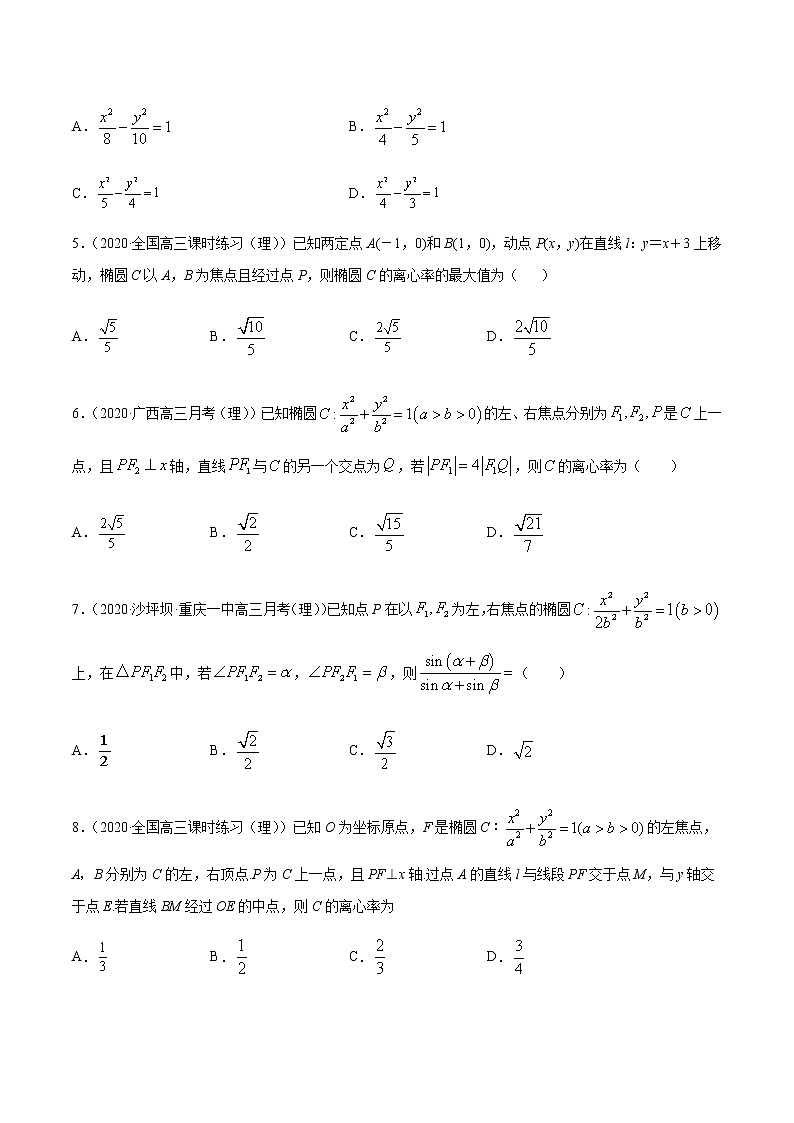 A. x²/8 − y²/10 = 1 B. x²/4 − y²/5 = 1
C. x²/5 − y²/4 = 1 D. x²/4 − y²/3 = 1
5.(2020·全国高三课时练习(理))已知两定点A(-1,0)和B(1,0),动点P(x,y)在直线l:y=x+3上移
动,椭圆C以A,B为焦点且经过点P,则椭圆C的离心率的最大值为( )
A. √5/5 B. √10/5 C. 2√5/5 D. 2√10/5
6.(2020·广西高三月考(理))已知椭圆C: x²/a² + y²/b² = 1(a > b > 0)的左、右焦点分别为F₁,F₂,P是C上一
点,且PF₂⊥x轴,直线PF₁与C的另一个交点为Q,若|PF₁| = 4|F₁Q|,则C的离心率为( )
A. 2√5/5 B. √2/2 C. √15/5 D. √21/7
7.(2020·沙坪坝·重庆一中高三月考(理))已知点P在以F₁,F₂为左,右焦点的椭圆C: x²/2b² + y²/b² = 1(b > 0)
上,在△PF₁F₂中,若∠PF₁F₂ = α,∠PF₂F₁ = β,则 sin(α+β)/(sin α + sin β) = ( )
A. 1/2 B. √2/2 C. √3/2 D. √2
8.(2020·全国高三课时练习(理))已知O为坐标原点,F是椭圆C: x²/a² + y²/b² = 1(a > b > 0)的左焦点,
A,B分别为C的左,右顶点.P为C上一点,且PF⊥x轴.过点A的直线l与线段PF交于点M,与y轴交
于点E.若直线BM经过OE的中点,则C的离心率为
A. 1/3 B. 1/2 C. 2/3 D. 3/4